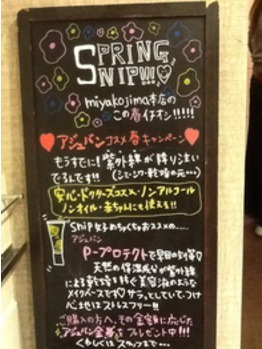 SPRING
SNIP!!!♡
miyakojima本店の
この春イチオシ!!!!!
♥アジュバンコスメ春キャンペーン♥
もうすでに!紫外線が降り注い
でるんです!!(シミ・シワ・乾燥の元…)
安心・ドクターズコスメ・ノンアルコール
ノンオイル・赤ちゃんにも使える!!
Snip女子めちゃくちゃおススメの....
アジュバン
P-プロテクトで早目の対策♡
天然の保湿成分が紫外線
による乾燥を防ぐ美容液のような
メイクベースです♡サラッとしていてつけ
心地はストレスフリー!!
ご購入の方へ、その金額に応じた
アジュバン金券をプレゼント中!!!
くわしくはスタッフまで...